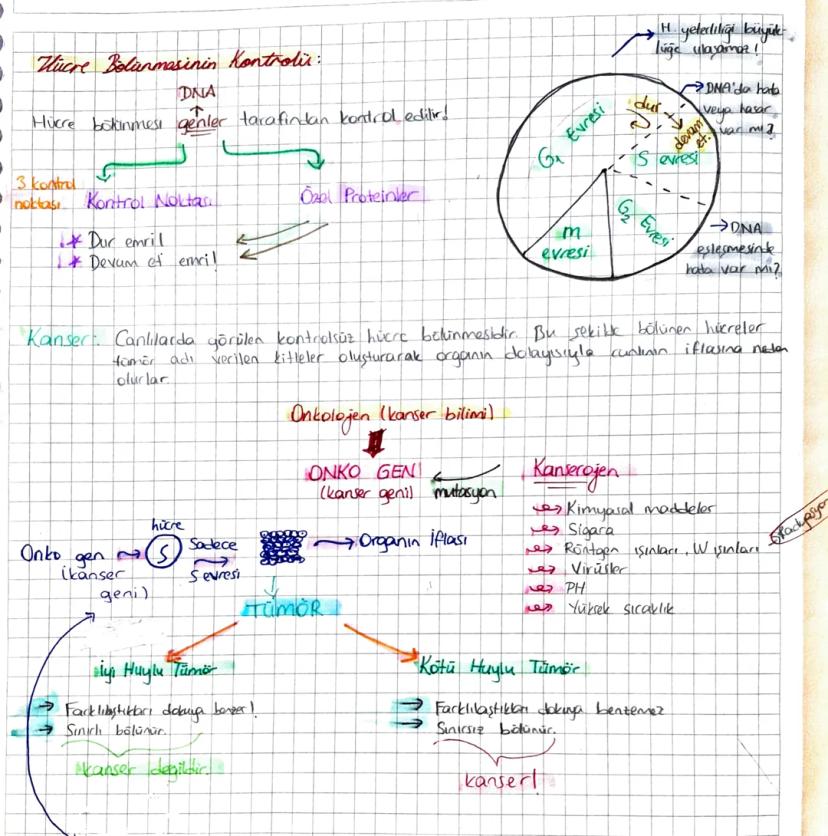 Hücre Bölünmesinin Kontrolü:
DNA
Hücre bölünmesi genler tarafından kontrol edilir!
3 kontrol
noktası
Kontrol Noktası
Özel Proteinler
* Dur emri!
* Devam et emri!
H. yeterliliği büyük-
lüğe ulaşamaz!
DNA'da hata
veya hasar
var mı?
dur
devam
et.
G₁ Evresi
S evresi
G₂ Evresi
m
evresi
→DNA
eşleşmesinde
hata var mı?
Kanser: Canlılarda görülen kontrolsüz hücre bölünmesidir. Bu şekilde bölünen hücreler
tümör adı verilen kitleler oluşturarak organın dolayısıyla canlının iflasına neden
olurlar.
Onkolojen (kanser bilimi)
ONKO GENİ
(kanser geni)
mutasyon
Kanserojen
Kimyasal maddeler
Sigara
Röntgen ışınları, W ışınları
Radyasyon
Virüsler
PH
Yüksek sıcaklık
Onko gen
(kanser
geni)
hücre
S
Sadece
S evresi
Organın İflası
TÜMÖR
İyi Huylu Tümör
→ Farklılaştıkları dokuya benzer!
→ Sınırlı bölünür.
kanser değildir!
Kötü Huylu Tümör
→ Farklılaştıkları dokuya benzemez
→ Sınırsız bölünür.
kanser!